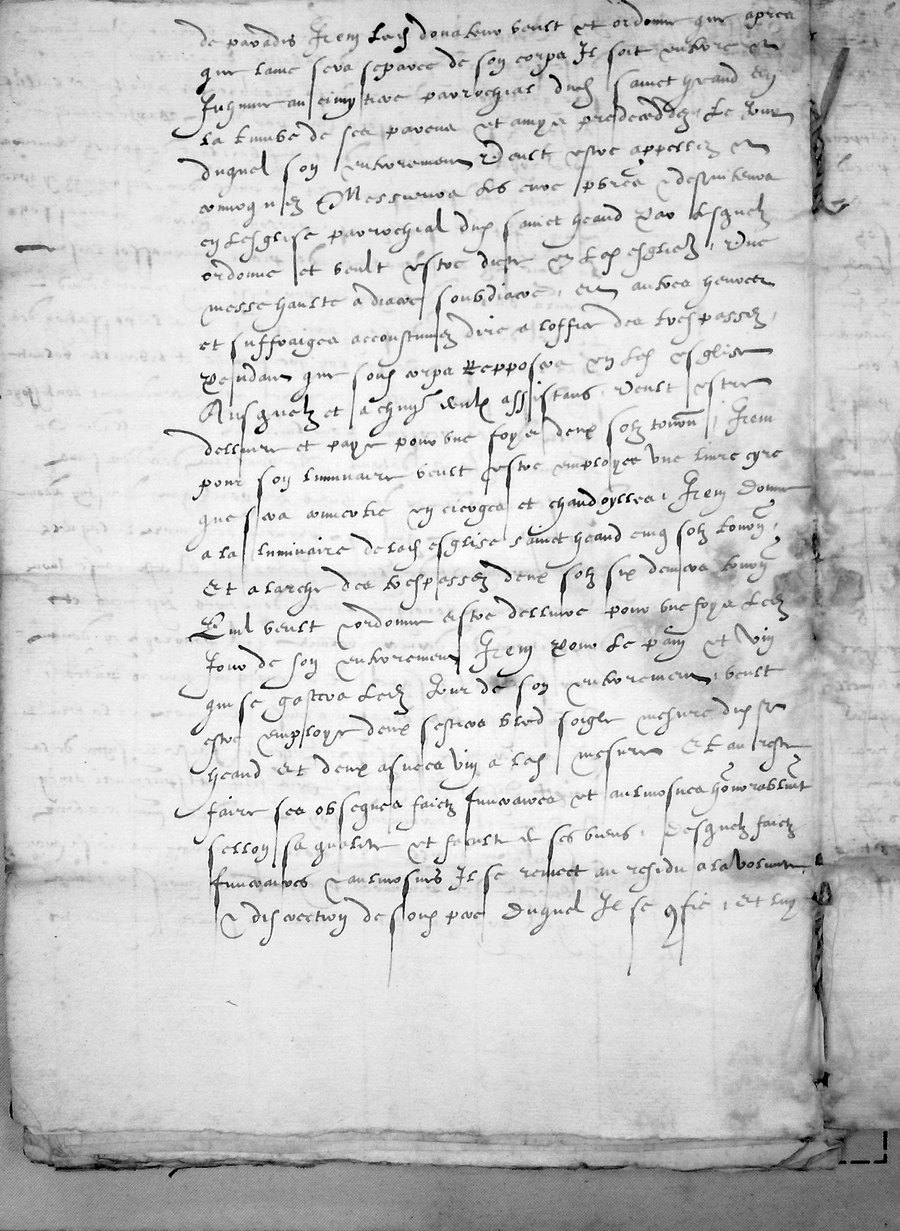 de paradis Item led donateur veult et ordonne que apres
que lame sera separee de son corps Il soit enterre et
Inhume au cimytiere parrochial dud sainct heand en
la tumbe de ses parens et amys predecedez Le Jour
duquel son enterrement Veult estre appellez et
convoquez Messieurs les cure pbres & desserviteurs
en lesglise parrochial dud sainct heand par lesquelz
ordonne et veult estre dicte en lad esglize Une
messe haulte a diacre soubdiacre et autres heures
et suffraiges accoustumez dire a loffice des trespassez
Pendant que sond corps Repposera en lad esglise
Ausquelz et a chun deulx assistans Veult estre
dellivre et paye pour une foys deux solz tourn Item
pour son luminaire veult estre employee une livre cyre
que sera convertie en cierges et chandoylles Item donne
a la luminaire de lad esglise sainct heand cinq solz tourn
Et a larche des trespassez deux solz six deniers tourn
Quil veult & ordonne estre dellivre pour une foys led
Jour de son enterrement Item pour le pain et vin
qui se gastera led Jour de son enterrement veult
estre employe deux sestiers bled soigle mesure dud st
heand et deux asnees vin a lad mesure Et au reste
faire ses obseques faictz funeraires et aulmosnes honorablemt
sellon sa qualite et faculte de ses biens Desquelz faictz
funeraires & aulmosnes Il se remect au residu a la volunte
& discretion de sond pere Duquel Il se cfie et luy